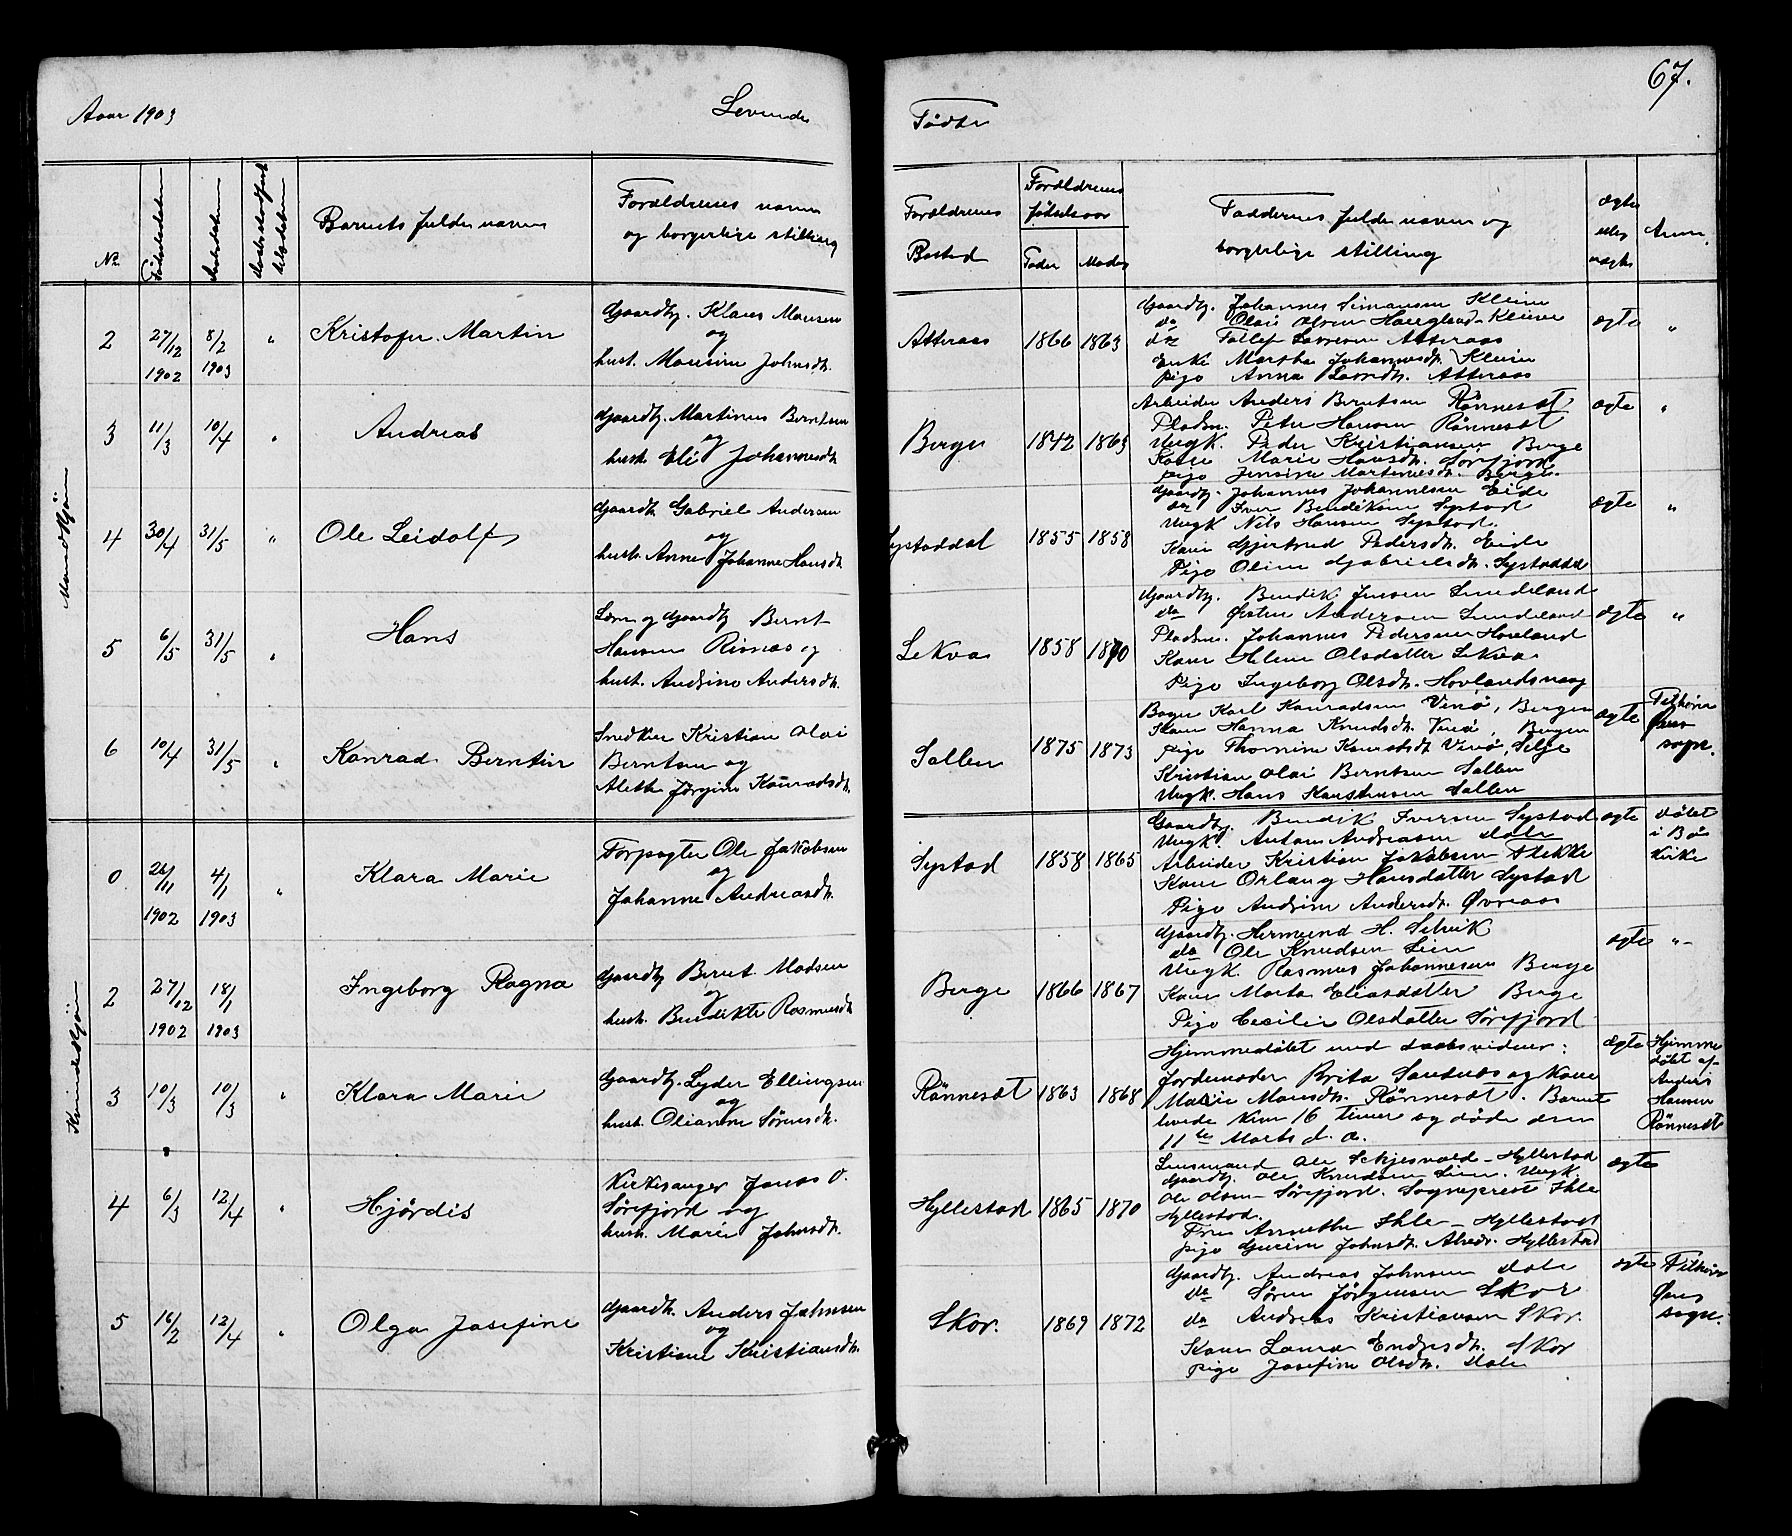 Aaar 1903
Levende
Fødte
67.
No.
Fødselsdatum
Daabsdatum
Barnets fulde navn
Forældrenes navne
og borgerlige stilling
Forældrenes
Bosted
Forældrenes
fødselsaar
Fader
Moder
Faddernes fulde navne og
borgerlige stilling
Ægte
eller
uægte
Anm.
Mandkjøn
2
27/12
1902
8/2
1903
"
Kristofer Martin
Gaardbg. Klaus Monsen
og
hust. Monsine Johnsdtr.
Atteraas
1866
1863
Gaardbg. Johannes Simonsen Kleiva
do Olai Olsen Haugland - Kleiva
do Tollef Larsen Atteraas
Enke Martha Johannesdtr. Kleiva
Pige Anna Larsdtr. Atteraas
ægte
"
3
11/3
10/4
"
Andreas
Gaardbg. Martinus Berntsen
og
hust. Eli Johannesdtr
Berge
1842
1863
Arbeider Anders Berntsen Rönneset
Pladsm. Peter Hansen Rönneset
Ungk. Peder Kristiansen Berge
Kone Marie Hansdtr. Sørefjord
Pige Jensine Martinusdtr. Berge.
ægte
"
4
30/4
31/5
"
Ole Leidolf
Gaardb. Gabriel Andersen
og
hust. Anne Johanne Hansdtr.
Systaddal
1855
1858
Gaardbg. Johannes Johannesen Eide
do Iver Bendiksen Systad
Ungk Nils Hansen Systad.
Kone Gjertrud Pedersdtr. Eide
Pige Oline Gabrielsdtr. Systaddal
ægte
"
5
6/5
31/5
"
Hans
Gaardbg Bernt
Hansen Risnes og
hust. Andrine Andersdtr.
Lekva
1858
1870
Gaardbg. Bendik Jensen Sundeland
do Østen Andersen Sundeland
Pladsm. Johannes Pedersen Hovland
Kone Helene Olsdatter Lekva
Pige Ingeborg Olsdtr. Hovlandsvaag
ægte
"
6
10/4
31/5
"
Konrad Berntin
Snedker Kristian Olai
Berntsen og
Aleth Jørgine Konradsdtr.
Salbu
1875
1873
Bager Karl Konradsen Venø, Bergen
Kone Hanna Knudsdtr. Venø, Bergen
Pige Thomine Konradsdt Venø, Selje
Kristian Olai Berntsen Salbu
Ungk. Hans Salbu
ægte
Tilhører
Øens
sogn.
Kvindekjøn
0
26/11
1902
4/1
1903
"
Klara Marie
Forpagter Ole Jakobsen
og
Johanne Andreasdtr.
Systad
1858
1865
Gaardbg. Bendik Iversen Systad
Ungk. Anton Andreasen Dale
Arbeider Kristian Jakobsen Flekke
Kone Orlaug Hansdatter Systad
Pige Andrine Andersdtr. Øvreaas
ægte
døbt
i Bø
kirke
2
27/12
1902
18/1
1903
Ingeborg Ragna
Gaardbg Bernt Madsen
og
hust. Bendikte Rasmusdtr
Berge
1866
1867
Gaardbg. Hermund H. Selvik
do Ole Knudsen Lien
Ungk. Rasmus Johannesen Berge
Kone Marta Eliasdatter Berge
Pige Cecilie Olsdatter Sørefjord
ægte
"
3
10/3
10/3
"
Klara Marie
Gaardbg. Lyder Ellingsen
og
hust. Olianne Sørensdtr.
Rönneset
1863
1868
Hjemmedøbt med daabsvidner:
Jordemoder Brita Sandnes og Kone
Marie Monsdtr. Rönneset. Barnet
levede kun 16 timer og døde den
11te Marts d. a.
ægte
Hjemme
døbt af
Anders
Hansen
Rönneset
4
6/3
12/4
"
Hjørdis
Kirkesanger Jonas O.
Sørefjord og
hust. Marie Johnsdtr.
Hyllestad
1865
1870
Lensmand Ole Schjesvold - Hyllestad
Gaardbg. Ole Knudsen Lien. Ungk.
Ole Olsen Sørefjord. Sogneprest Ihle
Hyllestad.
Fru Annethe Ihle - Hyllestad
Pige Gurine Johnsdtr. Hyllestad
ægte
5
16/2
12/4
"
Olga Josefine
Gaardb. Anders Johnsen
og
Kristine Kristiansdtr.
Skor.
1869
1872
Gaardbg. Andreas Johnsen Dale
do Søren Jørgensen Skor
do Andreas Kristiansen Skor.
Kone Lovise Endresdtr. Skor
Pige Josefine Olsdtr. Dale
ægte
Tilhører
Øens
sogn.